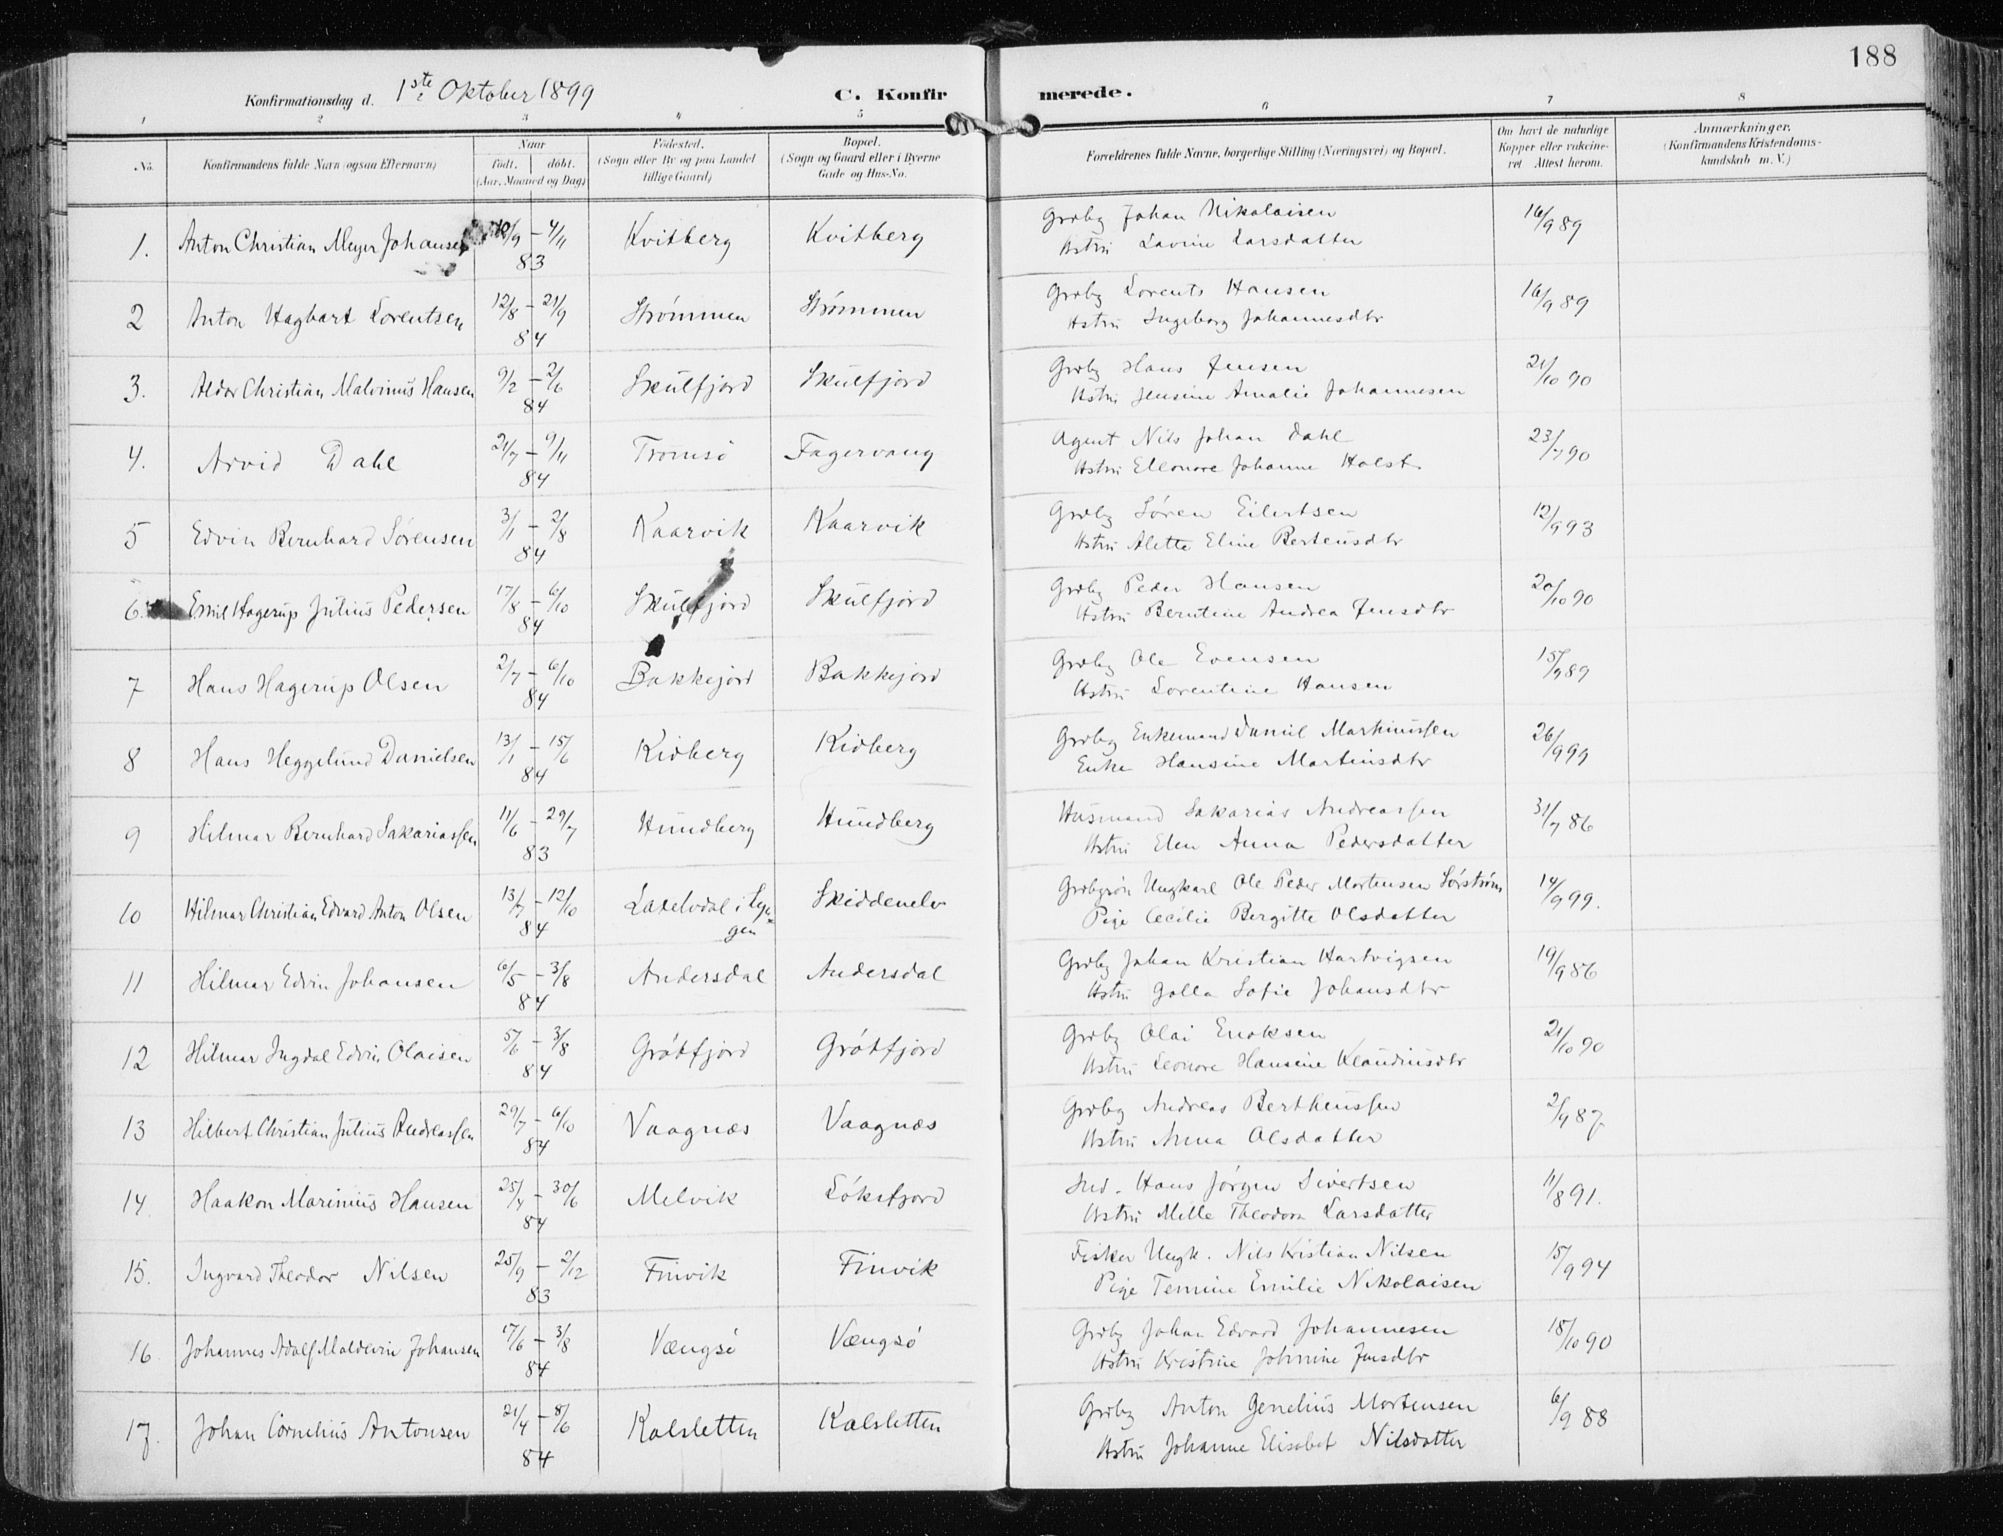 188
Konfirmationsdag d. 1ste Oktober 1899 C. Konfirmerede.
1 2 3 4 5 6 7 8
No. Konfirmandens fulde Navn (ogsaa Efternavn) Naar født. døbt. (Aar, Maaned og Dag) Fødested. (Sogn eller By og paa Landet tillige Gaard) Bopæl. (Sogn og Gaard eller i Byerne Gade og Hus-No. Forældrenes fulde Navne, borgerlige Stilling (Næringsvei) og Bopæl. Om havt de naturlige Kopper eller vakcineret. Attest herom. Anmærkninger. (Konfirmandens Kristendomskundskab m. V.)
1. Anton Christian Meyer Johansen /9 – 4/11 83 Kvitberg Kvitberg Grdbg Johan Nikolaisen 16/9 89
Hstru Lavine Larsdatter
2 Anton Hagbart Lorentsen 12/8 – 21/9 84 Strømmen Strømmen Grdbg Lorents Hansen 16/9 89
Hstru Ingeborg Johannesdtr
3. Aldor Christian Malvinus Hansen 9/2 – 2/6 84 Skulfjord Skulfjord Grdbg Hans Jensen 21/10 90
Hstru Jensine Amalie Johannesen
4. Arvid Dahl 21/7 – 9/11 84 Tromsö Fagervang Agent Nils Johan Dahl 23/7 90
Hstru Elleonore Johanne Holst
5 Edvin Bernhard Sörensen 3/1 – 2/8 84 Kaarvik Kaarvik Grdbg Sören Eilertsen 12/9 93
Hstru Alette Eline Berteusdtr
6. Emil Hagerup Julius Pedersen 17/8 – 6/10 84 Skulfjord Skulfjord Grdbg Peder Hansen 20/10 90
Hstru Berntine Andrea Jensdtr
7 Hans Hagerup Olsen 2/7 – 6/10 84 Bakkejord Bakkejord Grdbg Ole Evensen 15/9 89
Hstru Lorentine Hansen
8 Hans Heggelund Danielsen 13/1 – 15/6 84 Kidberg Kidberg Grdbg Enkemand Daniel Martinussen 26/9 99
Enke Hansine Martinsdtr
9 Hilmar Bernhard Sakariassen 11/6 – 29/7 83 Hundberg Hundberg Husmand Sakarias Andreassen 31/7 86
Hstru Elen Anna Pedersdatter
10 Hilmar Christian Edvard Anton Olsen 13/7 – 12/10 84 Lakselvdal i Lyngen Skiddenelv Grdbrsön Ungkarl Ole Peder Mortensen Sörström 14/9 99.
Pige Cecilie Bergitte Olsdatter
11 Hilmar Edvin Johansen 6/5 – 3/8 84 Andersdal Andersdal Grdbg Johan Kristian Hartvigsen 19/9 86
Hstru Golla Sofie Johansdtr
12 Hilmar Ingdal Edvin Olaisen 5/6 – 3/8 84 Grötfjord Grötfjord Grdbg Olai Enoksen 21/10 90
Hstru Leonore Hansine Klaudiusdtr
13 Hilbert Christian Julius Andreassen 29/7 – 6/10 84 Vaagnæs Vaagnæs Grdbg Andreas Bertheussen 2/9 87
Hstru Anna Olsdatter
14. Haakon Marinius Hansen 25/4 – 30/6 84 Melvik Löksfjord Ind. Hans Jörgen Sivertsen 11/8 91.
Hstru Mille Theodora Larsdatter
15. Ingvard Theodor Nilsen 25/9 – 2/12 83 Finvik Finvik Fisker Ungk. Nils Kristian Nilsen 15/9 94
Pige Temine Emilie Nikolaisen
16 Johannes Adolf Maldevin Johansen 17/6 – 3/8 84 Vængsö Vængsö Grdbg Johan Edvard Johannesen 18/10 90
Hstru Kristine Johnine Jensdtr
17. Johan Cornelius Antonsen 21/4 – 8/6 84 Kalsletten Kalsletten Grdbg Anton Genelius Mortensen 6/9 88
Hstru Johanne Elisabet Nilsdatter